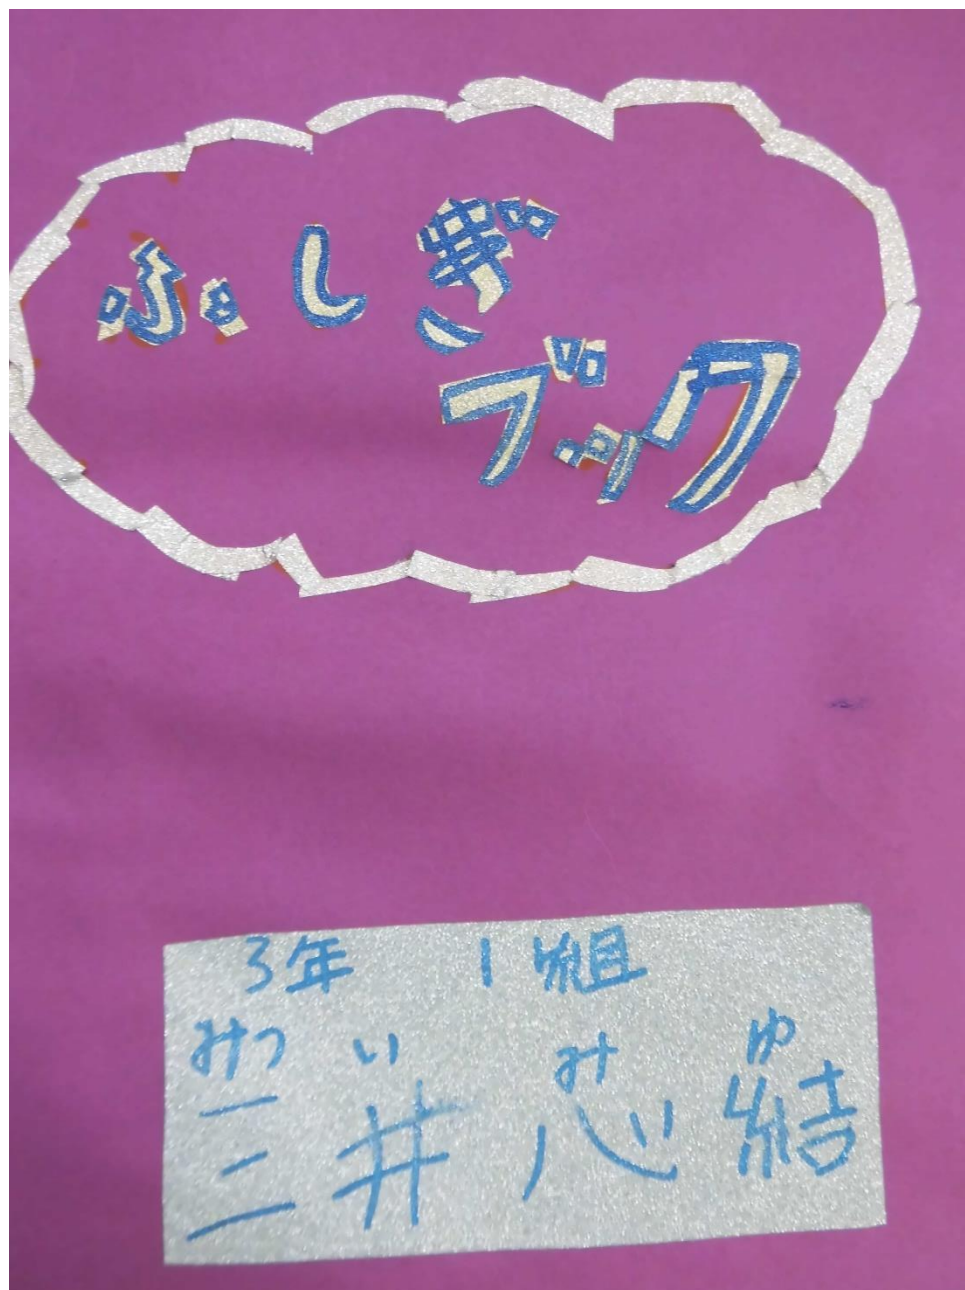 ふしぎ
ブック
3年 1組
みつ い み ゆ
三井心結